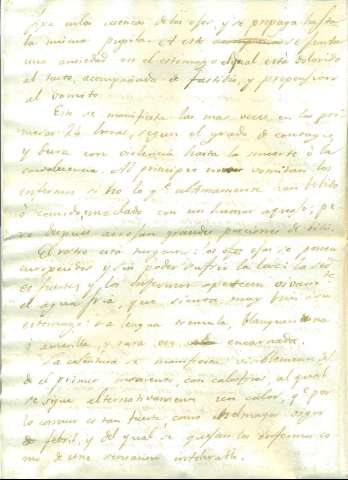 en las cuencas de los ojos, y se propaga hasta
la misma pupila. A este se junta
una ansiedad en el estomago el qual está dolorido
al tacto, acompañada de fastidio, y propension
al vomito.
Este se manifiesta las mas veces en las pri
meras 24 horas, segun el grado de contagio,
y dura con violencia hasta la muerte ó la
convalecencia. Al principio no vomitan los
enfermos sino lo q.e ultimamente han bebido
ó comido, mezclado con un humor aquoso; pe
ro despues arrojan grandes porciones de bilis.
El rostro está : los ojos se ponen
y sin poder sufrir la luz: la sed
es fuerte, y los enfermos apetecen
el agua fria, que sienta muy bien á su
estomago: la lengua tremula, blanquecina
ó amarilla, y rara vez encarnada.
La calentura se manifiesta violenta des
de el primer momento, con calofrios, al qual
se sigue alternativamente un calor, q.e por
lo comun es tan fuerte como el mayor rigor
febril, y del qual se quejan los enfermos co
mo de una sensacion intolerable.